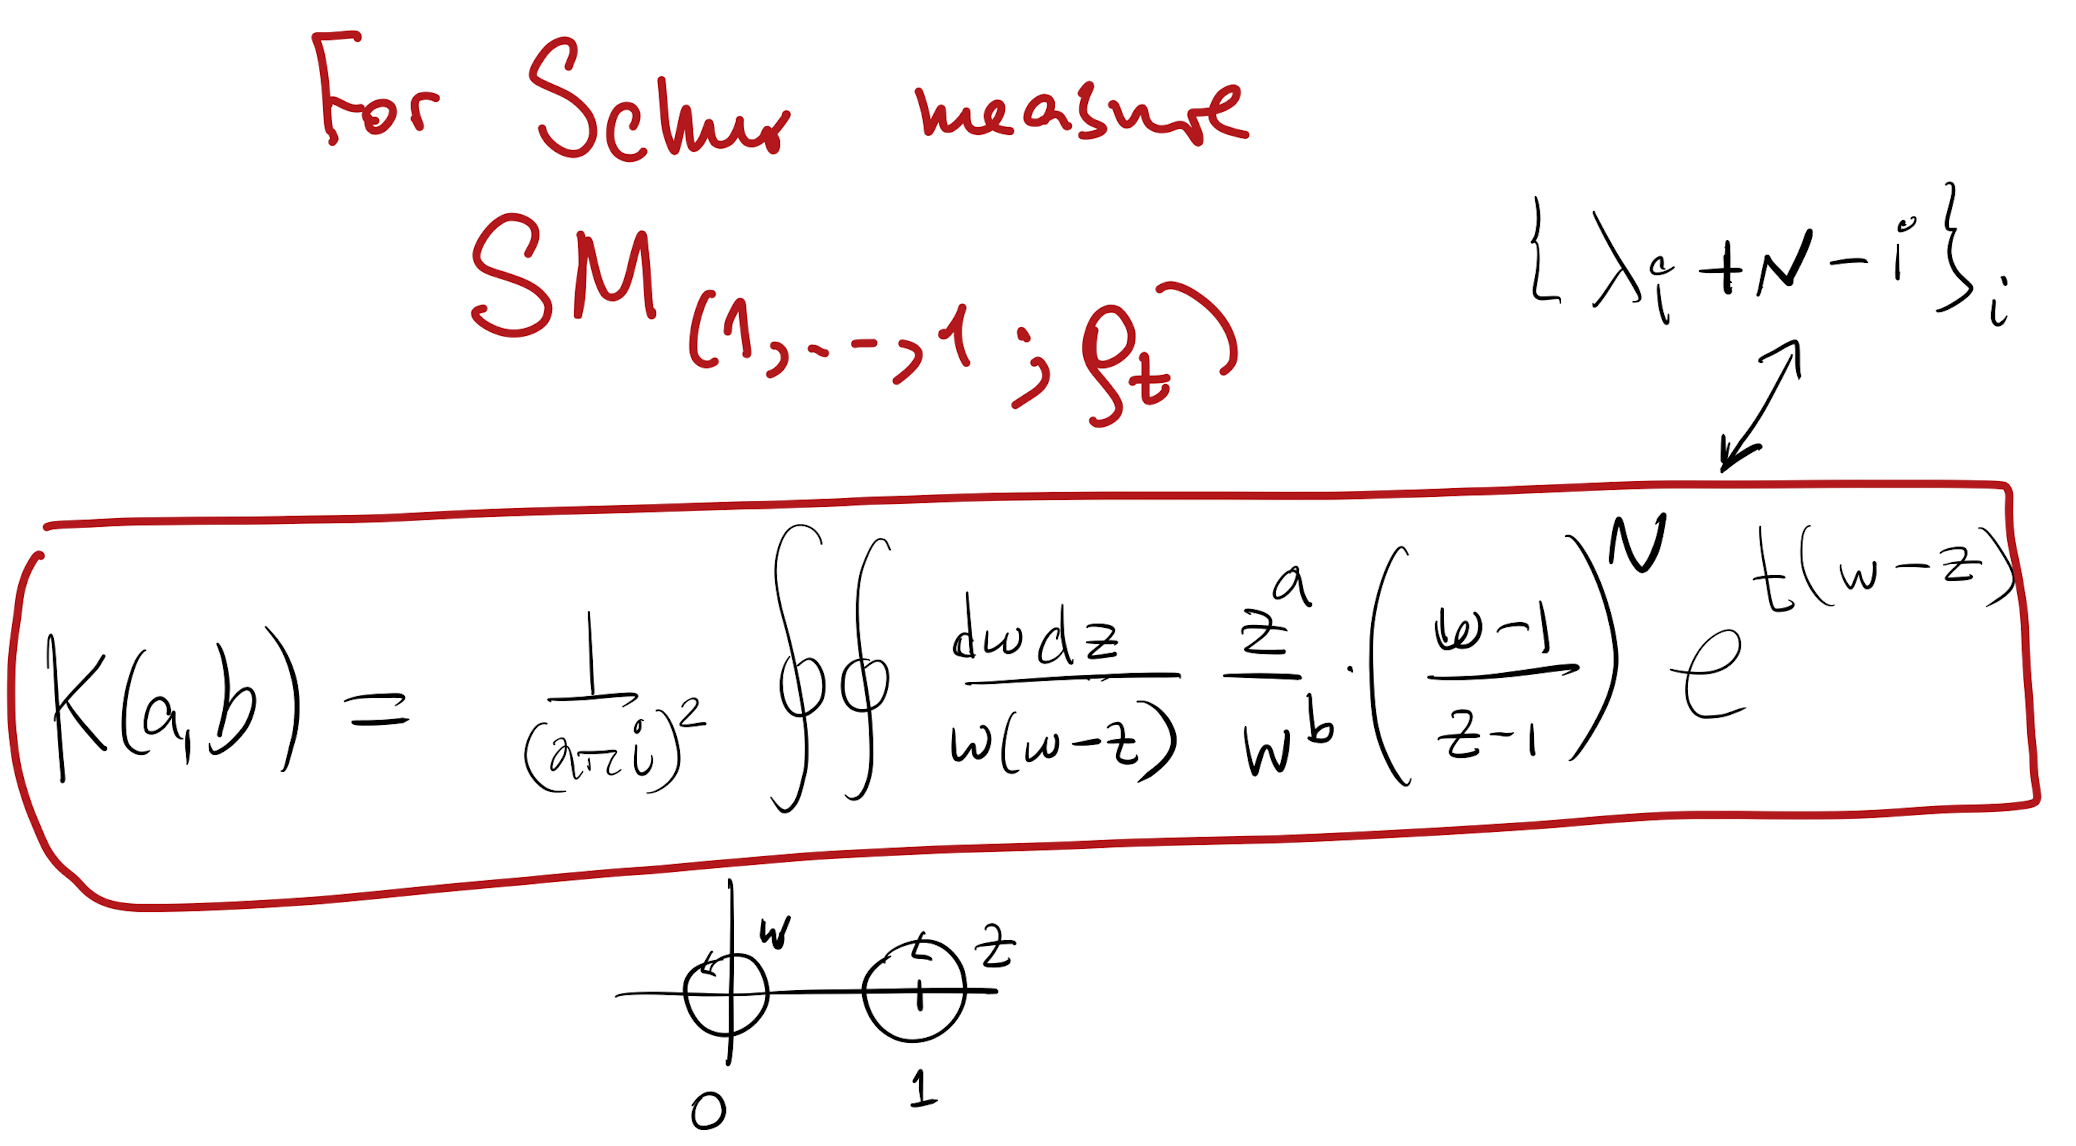 For Schur measure
SM_(1,...,1; ρ_t)
{λ_i + N - i}_i
K(a,b) = 1/(2πi)^2 ∮∮ dw dz/(w(w-z)) z^a/w^b · ((w-1)/(z-1))^N e^{t(w-z)}
w z
0 1